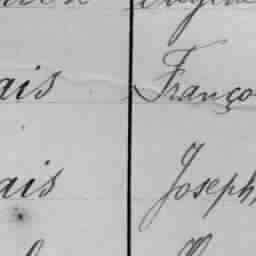 ais Franço
ais Joseph,